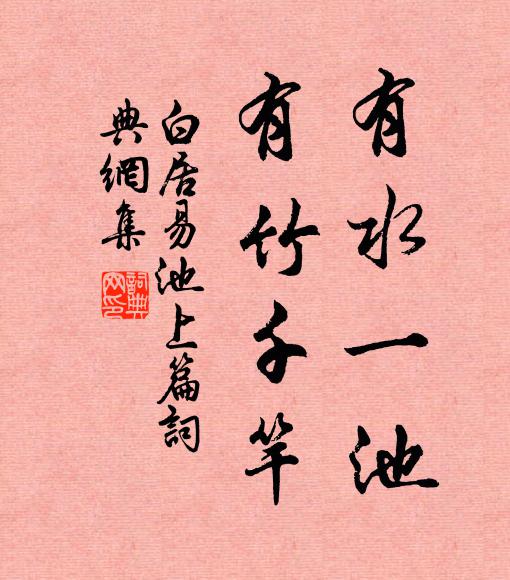 有水一池
有竹千竿
白居易池上篇詞
典網集
詞典
网印